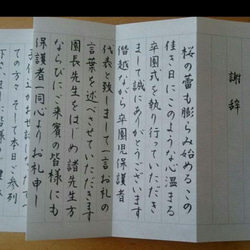 謝辞
桜の蕾も膨らみ始めるこの
佳き日にこのような心温まる
卒園式を執り行っていただき
まして誠にありがとうございます
僭越ながら卒園児保護者
代表と致しまして一言お礼の
言葉を述べさせていただきます
園長先生をはじめ諸先生方
ならびにご来賓の皆様にも
保護者一同心よりお礼申し
ての方々そ 本日 参列